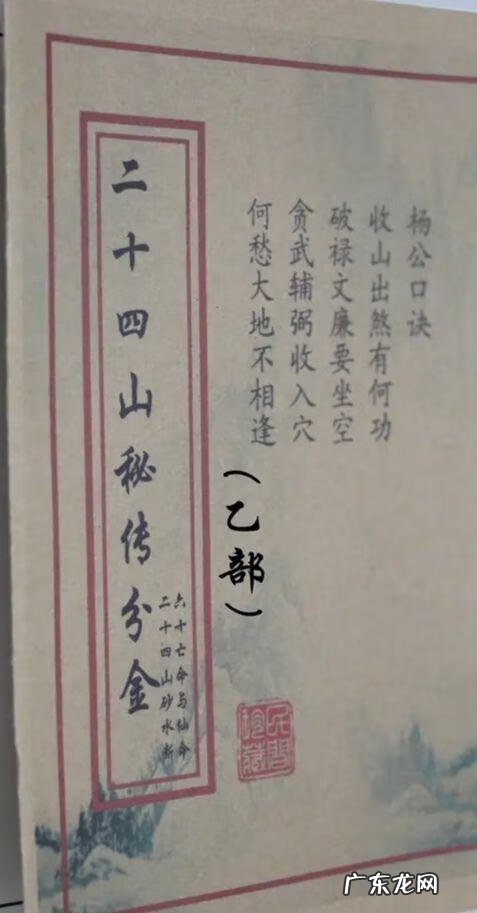 杨公口诀
收山出煞有何功
破禄文廉要坐空
贪武辅弼收入穴
何愁大地不相逢
（乙部）
二十四山秘传分金
六十亡命与仙命
二十四山砂水断
民间珍藏
广东龙网